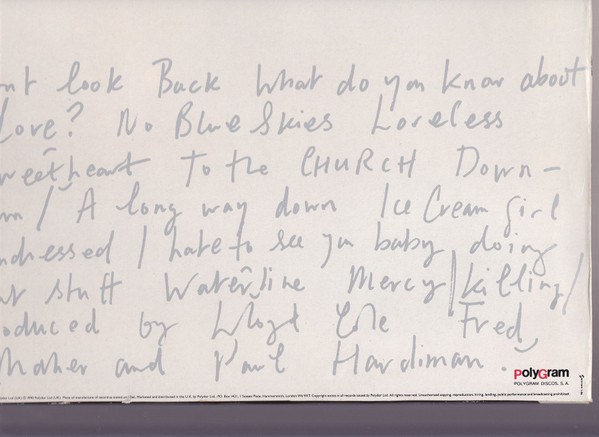 nt look Back What do you know about
Love? No Blue Skies Loveless
weetheart To the CHURCH Down-
n / A long way down Ice Cream Girl
ndressed I hate to see you baby doing
at stuff Waterline Mercy / killing /
oduced by Lloyd Cole Fred
Maher and Paul Hardiman.
PolyGram
POLYGRAM DISCOS, S.A.